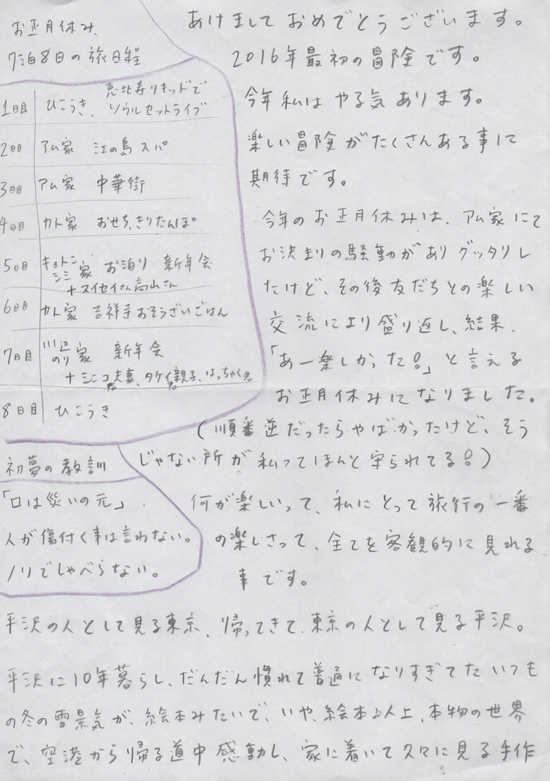 お正月休み
7泊8日の旅日程
1日目 ひこうき、恵比寿リキッドで
ソウルセットライブ
2日目 アム家 江の島スパ
3日目 アム家 中華街
4日目 カト家 おせち、きりたんぽ
5日目 家 お泊り 新年会
+スイセイさん高山さん
6日目 カト家 吉祥寺おそうざいごはん
7日目 川辺のり家 新年会
夫妻、タケイ親子、はっちゃく
8日目 ひこうき
初夢の教訓
「口は災いの元」.
人が傷付く事は言わない。
ノリでしゃべらない。
あけましておめでとうございます。
2016年最初の冒険です。
今年私はやる気あります。
楽しい冒険がたくさんある事に
期待です。
今年のお正月休みは、アム家にて
お決まりの騒動がありグッタリし
たけど、その後友だちとの楽しい
交流により盛り返し、結果、
「あー楽しかった!」と言える
お正月休みになりました。
(順番逆だったらやばかったけど、そう
じゃない所が私ってほんと守られてる!)
何が楽しいって、私にとって旅行の一番
の楽しさって、全てを客観的に見れる
事です。
平沢の人として見る東京、帰ってきて、東京の人として見る平沢。
平沢に10年暮らし、だんだん慣れて普通になりすぎてたいつも
の冬の雪景気が、絵本みたいで、いや、絵本以上、本物の世界
で、空港から帰る道中感動し、家に着いて久々に見る手作